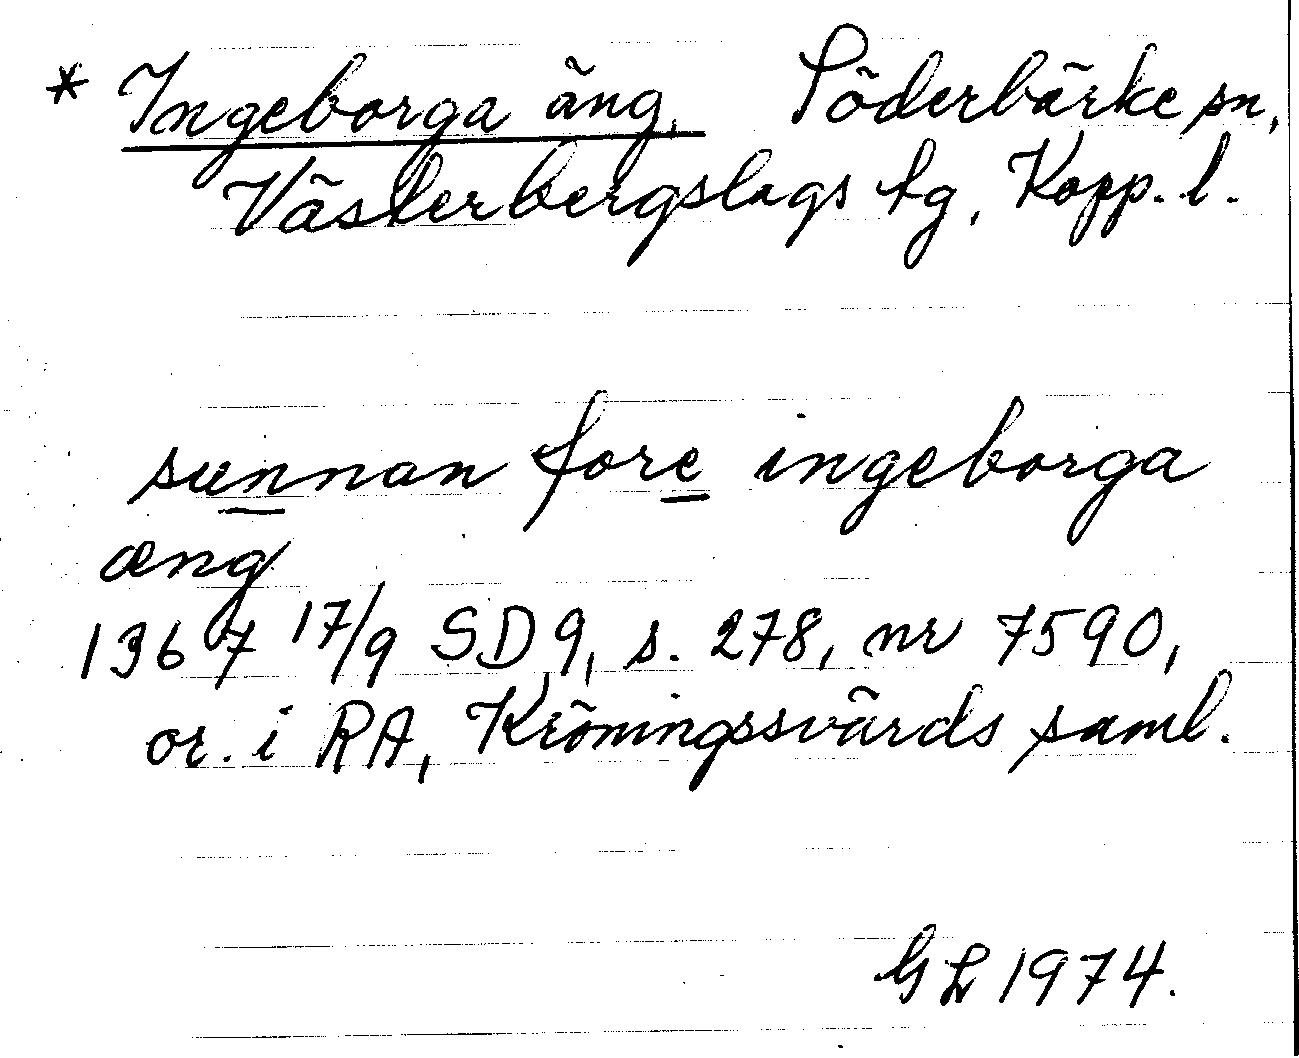 * Ingeborga äng, Söderbärke sn,
Västerbergslags tg, Kopp. l.
sunnan fore ingeborga
æng
1367 17/9 SD 9, s. 278, nr 7590,
or. i RA, Kröningssvärds saml.
GL 1974.